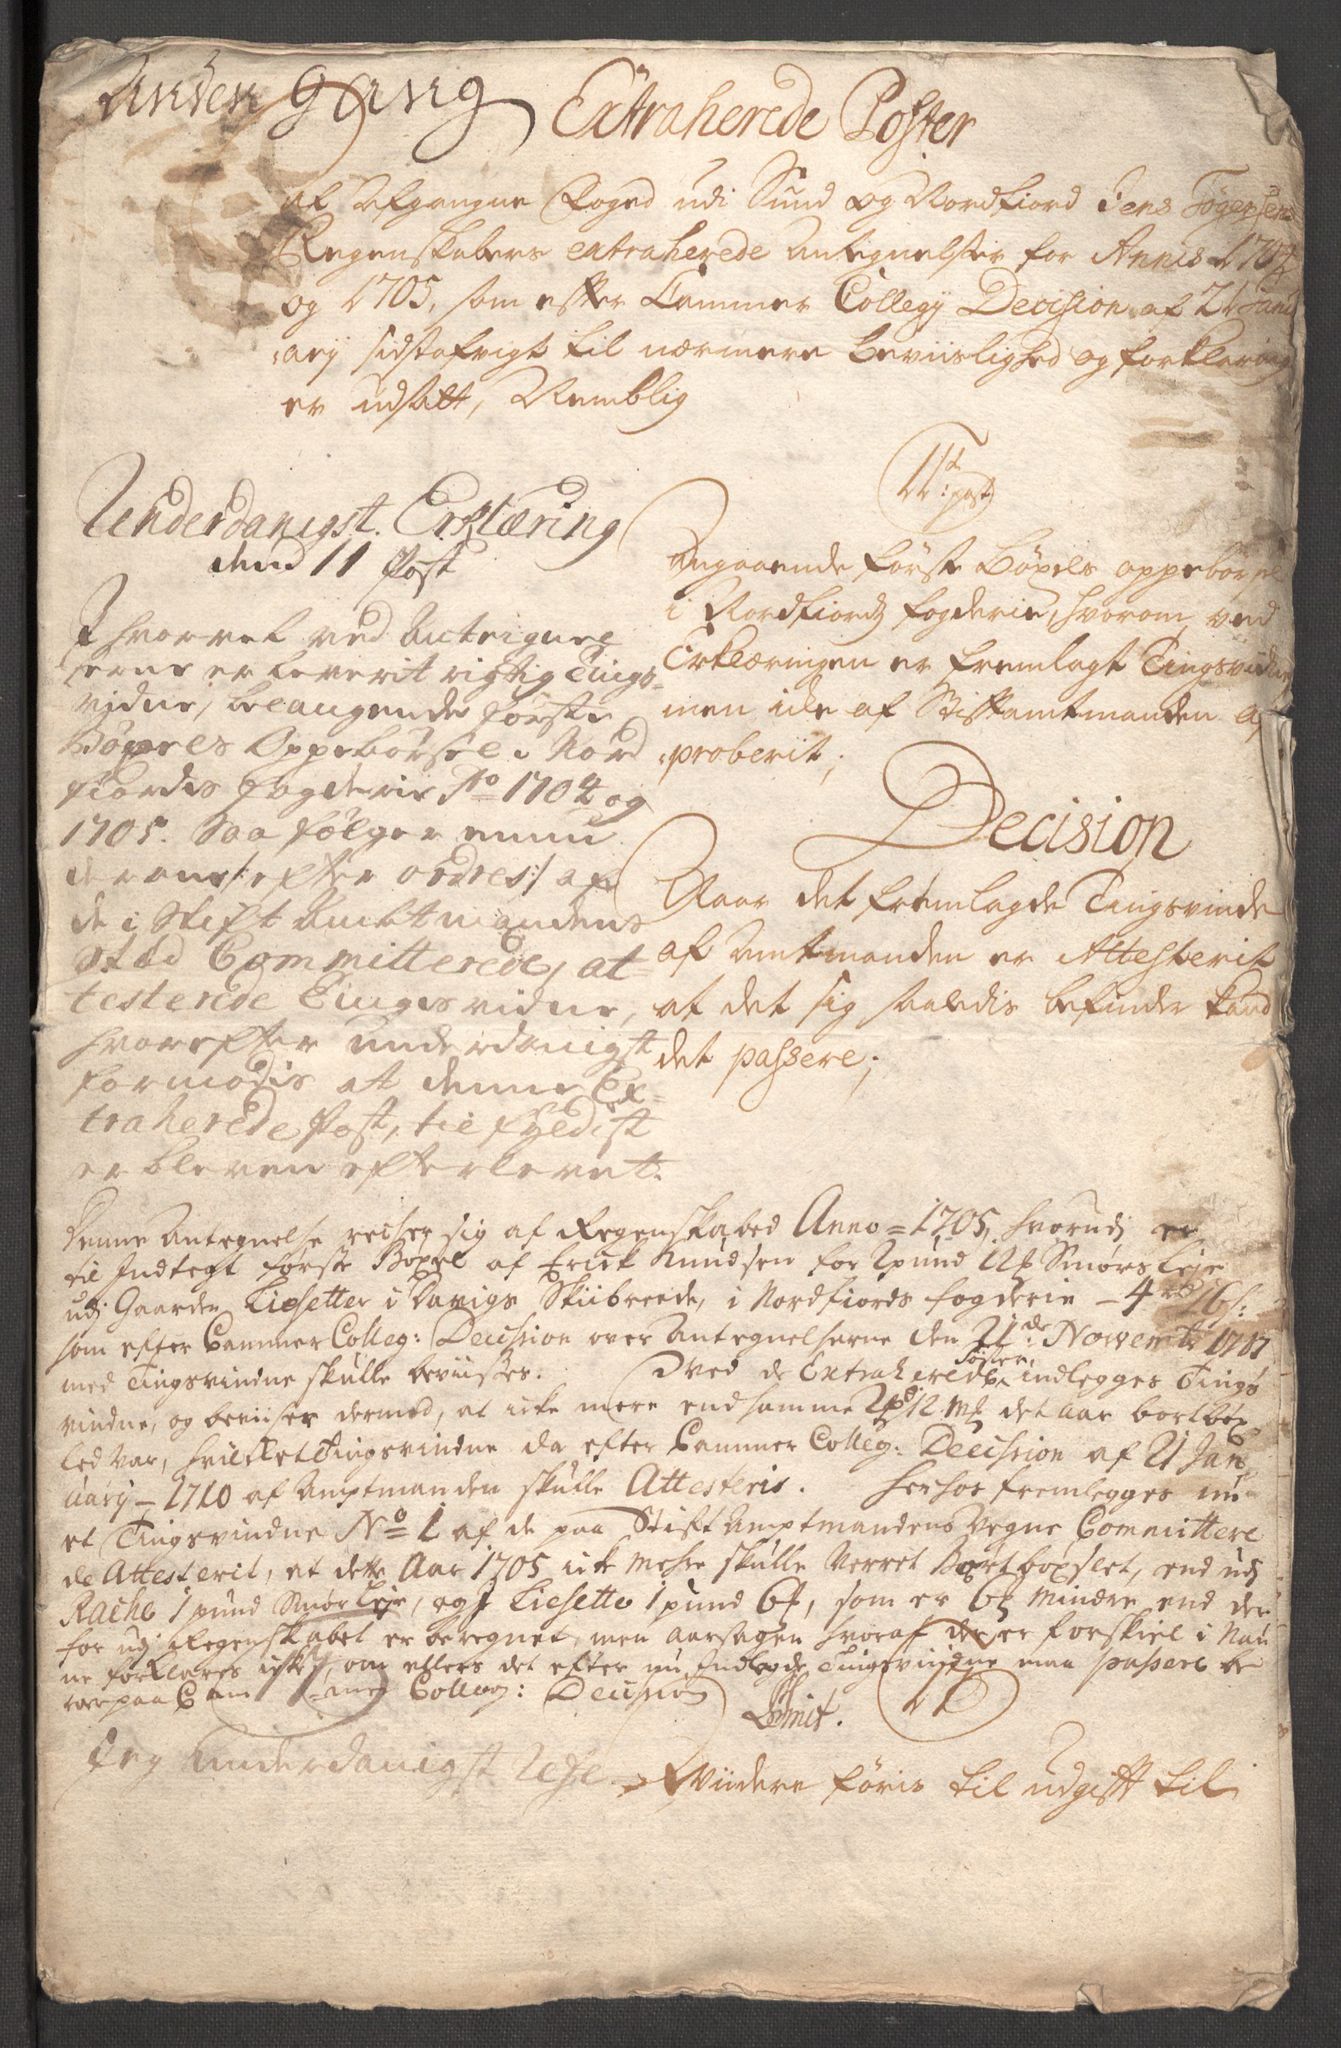 Anden gang
Extraherede Poster
af Afgangne Foged udi Sund og Nordfiord Jens Tøgersens
Regenskabers extraherede Antegnelser for Annis 1704
og 1705, som efter Cammer Collegij Decision af 21 Janu
arij sidstafvigt til nærmere beviislighed og forklaring
er udsatt, Nemblig
Underdanigst Erklæring
dend 11 Post
Ihvorvel ved Antegnel
serne er leverit rigtig Tings
vidne, belangende første
Bøxels Oppebørsel i Nord
fiordis fogderie Ao 1704 og
1705. Saa følger ennu
derom /:efter ordres:/ af
de i Stift Amtmandens
sted Committerede, at=
testerede Tingsvidne,
hvorefter underdanigst
formodis at denne Ex=
traherede Post, til fyldist
er bleven efterlevet.
11te post
Angaaende første Bøxels oppebørsel
i Nordfiords fogderie, hvorom ved
Erklæringen er fremlagt Tingsvidne
men icke af Stiftamtmanden ap
proberit;
Decision
Naar det fremlagde Tingsvinde
af Amtmanden er Attesterit
at det sig saaledis befinder kand
det passere;
Denne Antegnelse reiser sig af Regenskabed Anno = 1705, hvorudj er
til Indtegt første Boxel af Erick Knudsen for 2 pund Smørs Leje
udj Gaarden Liesetter i Davigs Skiibreede, i Nordfiords fogderie - 4 rd 16 s:
som efter Cammer Colleg: Decission over Antegnelserne den 21de Novembr 1707
med Tingsvindne skulle beviisses. Ved de Extraherede Poster, indlegges Tings
vindne, og beviiser dermed, at icke mere end samme 2 pd 12 Mk det aar bortbøx
led var, hvilcket Tingsvindne da efter Cammer Colleg: Decission af 21 Jan
uarij - 1710 af Amptmanden skulle Attesteris. Herhos fremlegges nu
et Tingsvindne No 1 af de paa Stiftamptmandens Vegne Committere
de Attesterit, at dette Aar 1705 icke meere skulle verret Bortboxslet, end udj
Rache 1 pund Smør Leje, og I Liesette 1 pund 6, som er 6 Mindre end der
for udj Regenskabet er beregnet, men aarsagen hvoraf der er forskiel i Nau
ne forklares icke, om ellers det efter nu Indlegde Tingsvindne maa passere be
roer paa Cammer Colleg: Decision
Smit.
Jeg underdanigst
Viidere føris til udgift til